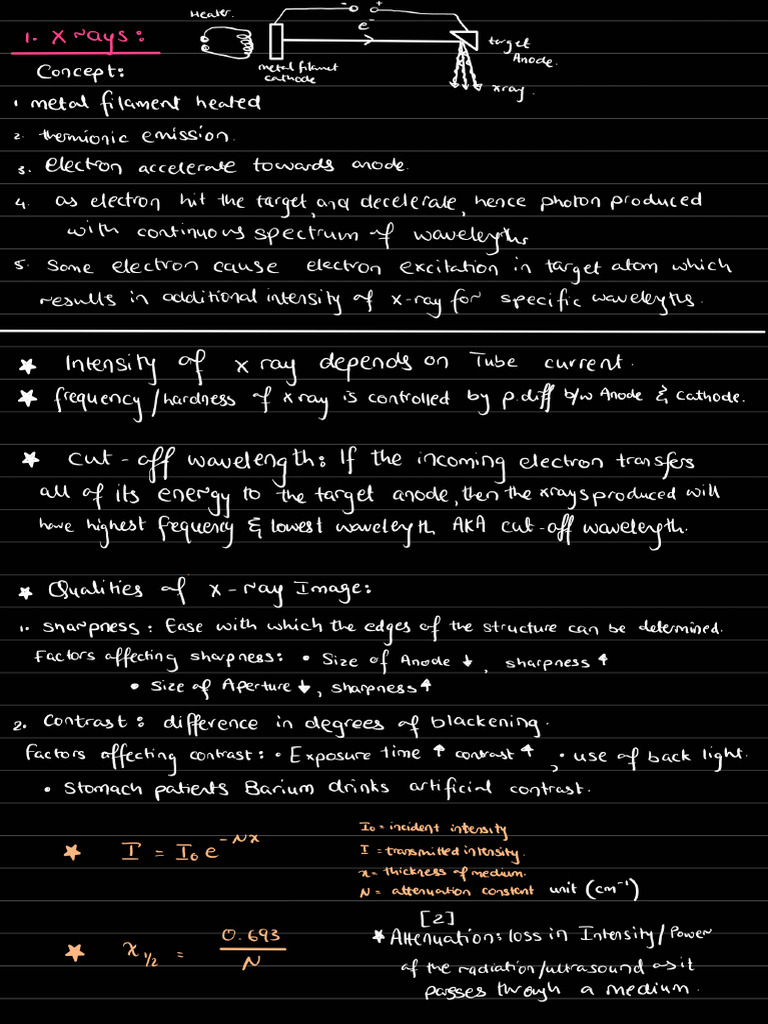 1. X rays:
Heater.
- +
e⁻
metal filamet
cathode
target
Anode.
xray.
Concept:
1 metal filament heated
2. thermionic emission.
3. electron accelerate towards anode.
4. as electron hit the target, and decelerate, hence photon produced
with continuous spectrum of wavelegths
5. Some electron cause electron excitation in target atom which
results in additional intensity of x-ray for specific wavelegths.
★ Intensity of x ray depends on Tube current.
★ frequency/hardness of x ray is controlled by p.diff b/w Anode & Cathode.
★ cut-off wavelength: If the incoming electron transfers
all of its energy to the target anode, then the xrays produced will
have highest frequency & lowest wavelength AKA cut-off wavelength.
★ Qualities of x-ray Image:
1. sharpness: Ease with which the edges of the structure can be determined.
Factors affecting sharpness: • Size of Anode ↓, sharpness ↑
• Size of Aperture ↓, sharpness ↑
2. Contrast: difference in degrees of blackening.
factors affecting contrast: • Exposure time ↑ contrast ↑, • use of back light.
• Stomach patients Barium drinks artificial contrast.
★ I = I₀ e^(-Nx)
I₀ = incident intensity
I = transmitted intensity.
x = thickness of medium.
N = attenuation constant unit (cm⁻¹)
★ x_1/2 = 0.693/N
[2]
★ Attenuation: loss in Intensity/Power
of the radiation/ultrasound as it
passes through a medium.